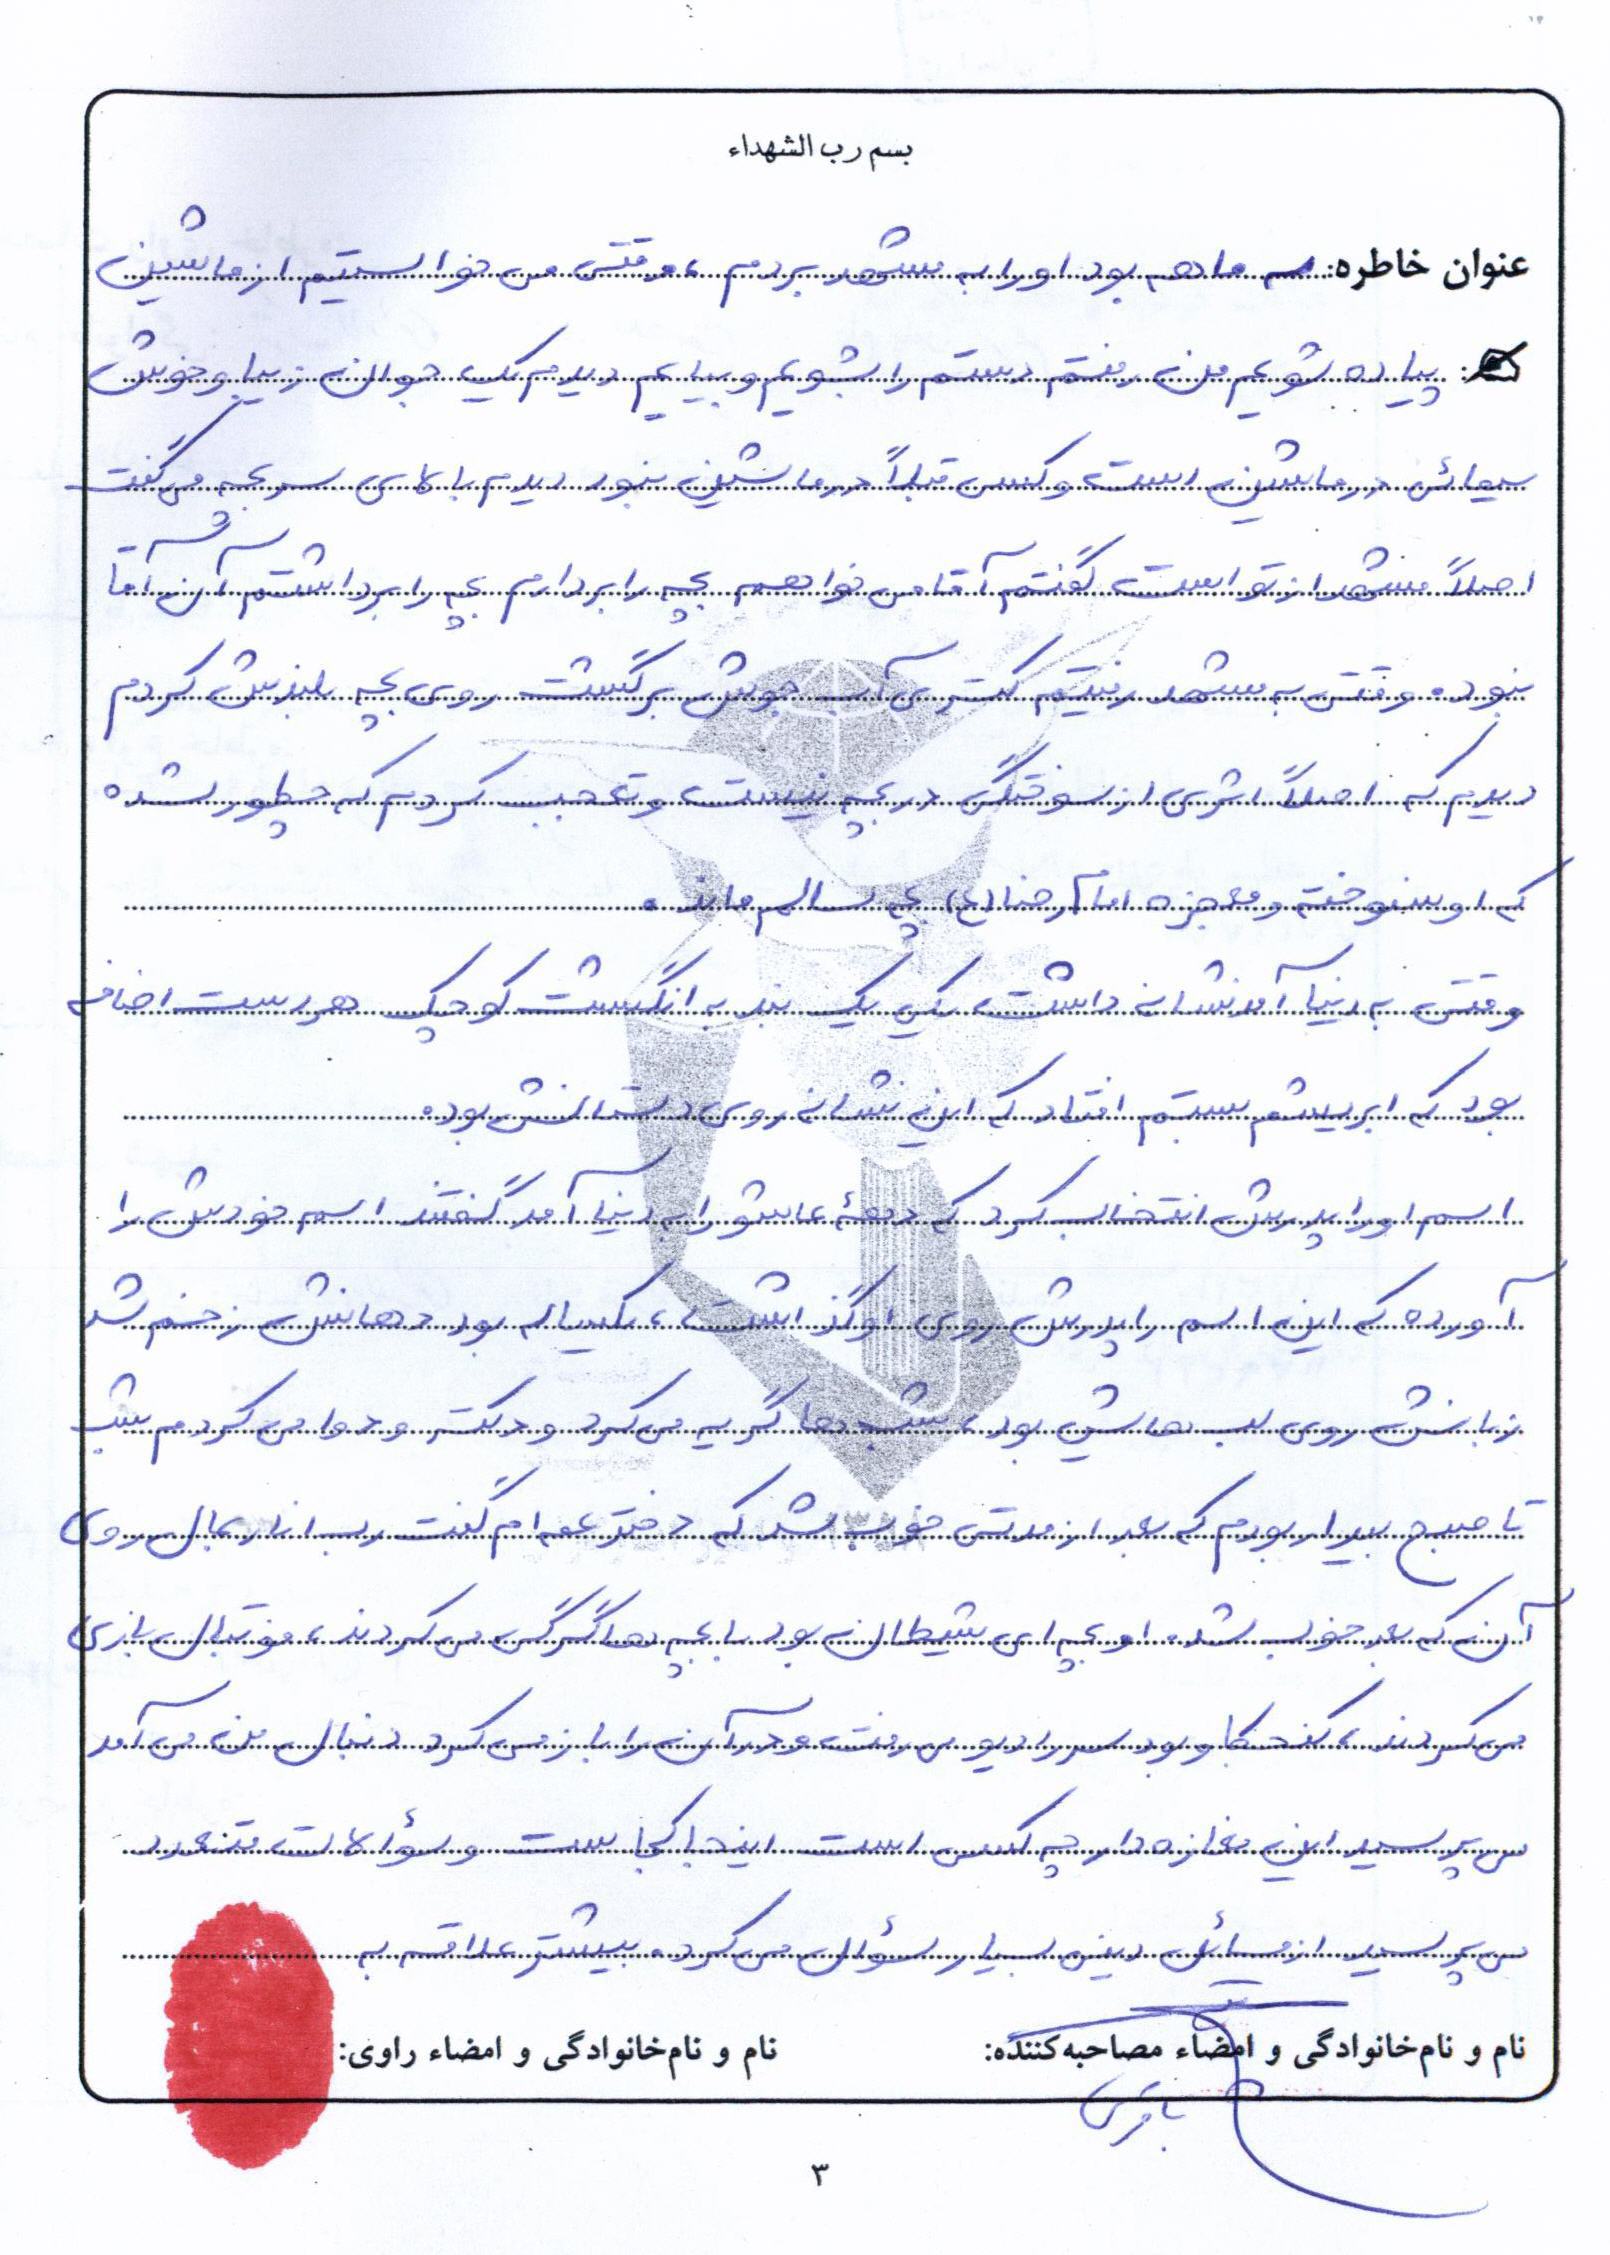 بسم رب الشهداء
عنوان خاطره: سه ماهه بود او را به مشهد بردم، وقتی می خواستیم از ماشین
پیاده شویم من رفتم دستم را بشویم و بیایم دیدم یک جوان زیبا و خوش
سیمائی در ماشین است و کسی قبلاً در ماشین نبود دیدم بالای سر بچه می گفت
اصلاً مشهد از تو است گفتم آقا می خواهم بچه را بردارم بچه را برداشتم آن آقا
نبود. وقتی به مشهد رفتیم کتری آب جوش برگشت روی بچه بلندش کردم
دیدم که اصلاً اثری از سوختگی در بچه نیست و تعجب کردم که چطور شده
که او نسوخته و معجزه امام رضا (ع) بچه سالم ماند.
وقتی به دنیا آمد نشانه داشت یکی یک بند به انگشت کوچک هر دست اضافه
بود که ابریشم بستم افتاد که این نشانه روی دستانش بود.
اسم او را پدرش انتخاب کرد که دههٔ عاشورا به دنیا آمد گفتند اسم خودش را
آورده که این اسم را پدرش روی او گذاشت، یکساله بود دهانش زخم شد
زبانش روی لب هایش بود، شب ها گریه می کرد و دکتر و دوا می کردم شب
تا صبح بیدار بودم که بعد از مدتی خوب شد که دختر عمه ام گفت رب انار بمال روی
آن که بعد خوب شد. او بچه ای شیطان بود با بچه ها گرگی می کردند، فوتبال بازی
می کردند، کنجکاو بود سر رادیو می رفت و در آن را باز می کرد دنبال من می آمد
می پرسید این مغازه دار چه کسی است اینجا کجاست و سؤالات متعدد
می پرسید از مسائل دینی بسیار سؤال می کرد. بیشتر علاقه به
نام و نام‌خانوادگی و امضاء مصاحبه‌کننده: نام و نام‌خانوادگی و امضاء راوی:
باقری
۳